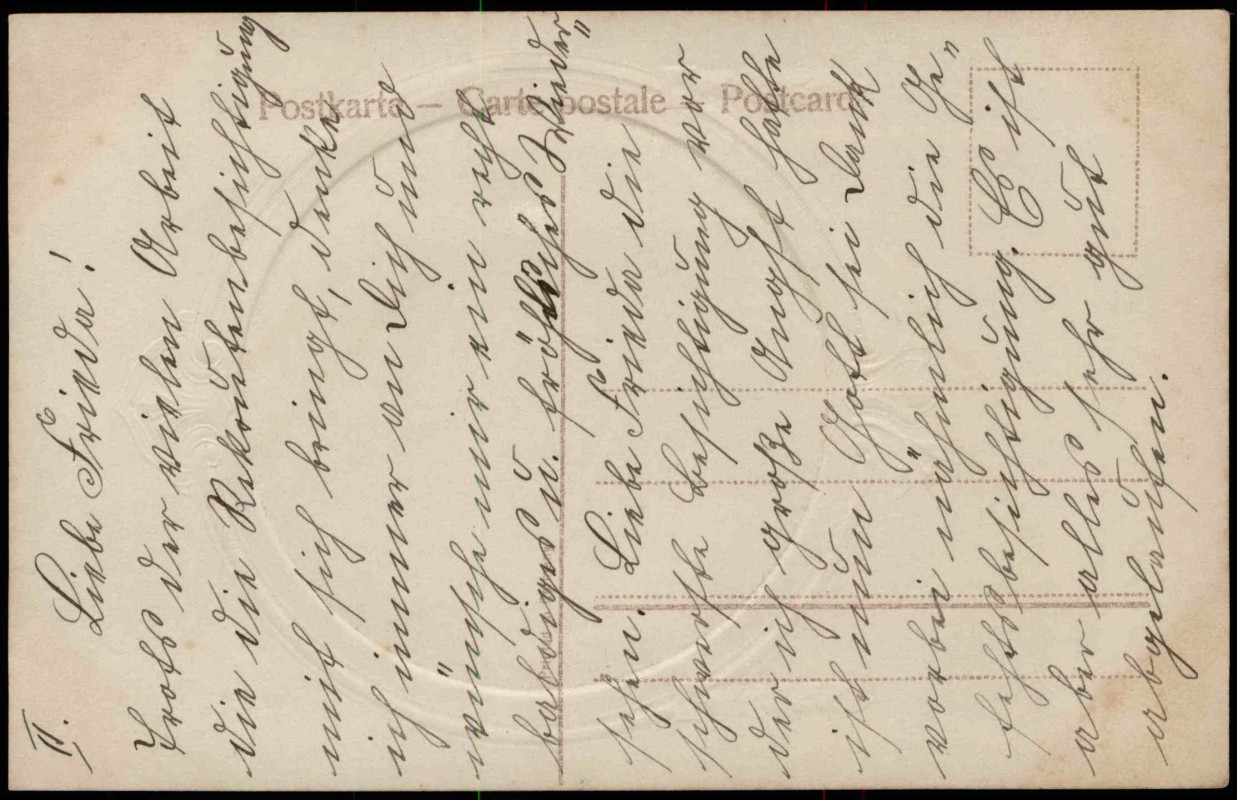 Postkarte – Carte postale – Postcard
II.
Liebe Frieda!
Trotz der vielen Arbeit
die die Rekrutenbesichtigung
mit sich bringt, denke
ich immer an Dich und
wünsche nur ein recht
baldiges u. fröhliches Wieder„
sehen. Liebe Frieda die
schwerste Besichtigung vor
der ich große Angst hatte
ist nun Gott sei Dank
vorbei nähmlich die Ge„
fechtsbesichtigung. Es ist
aber alles sehr gut
abgelaufen.